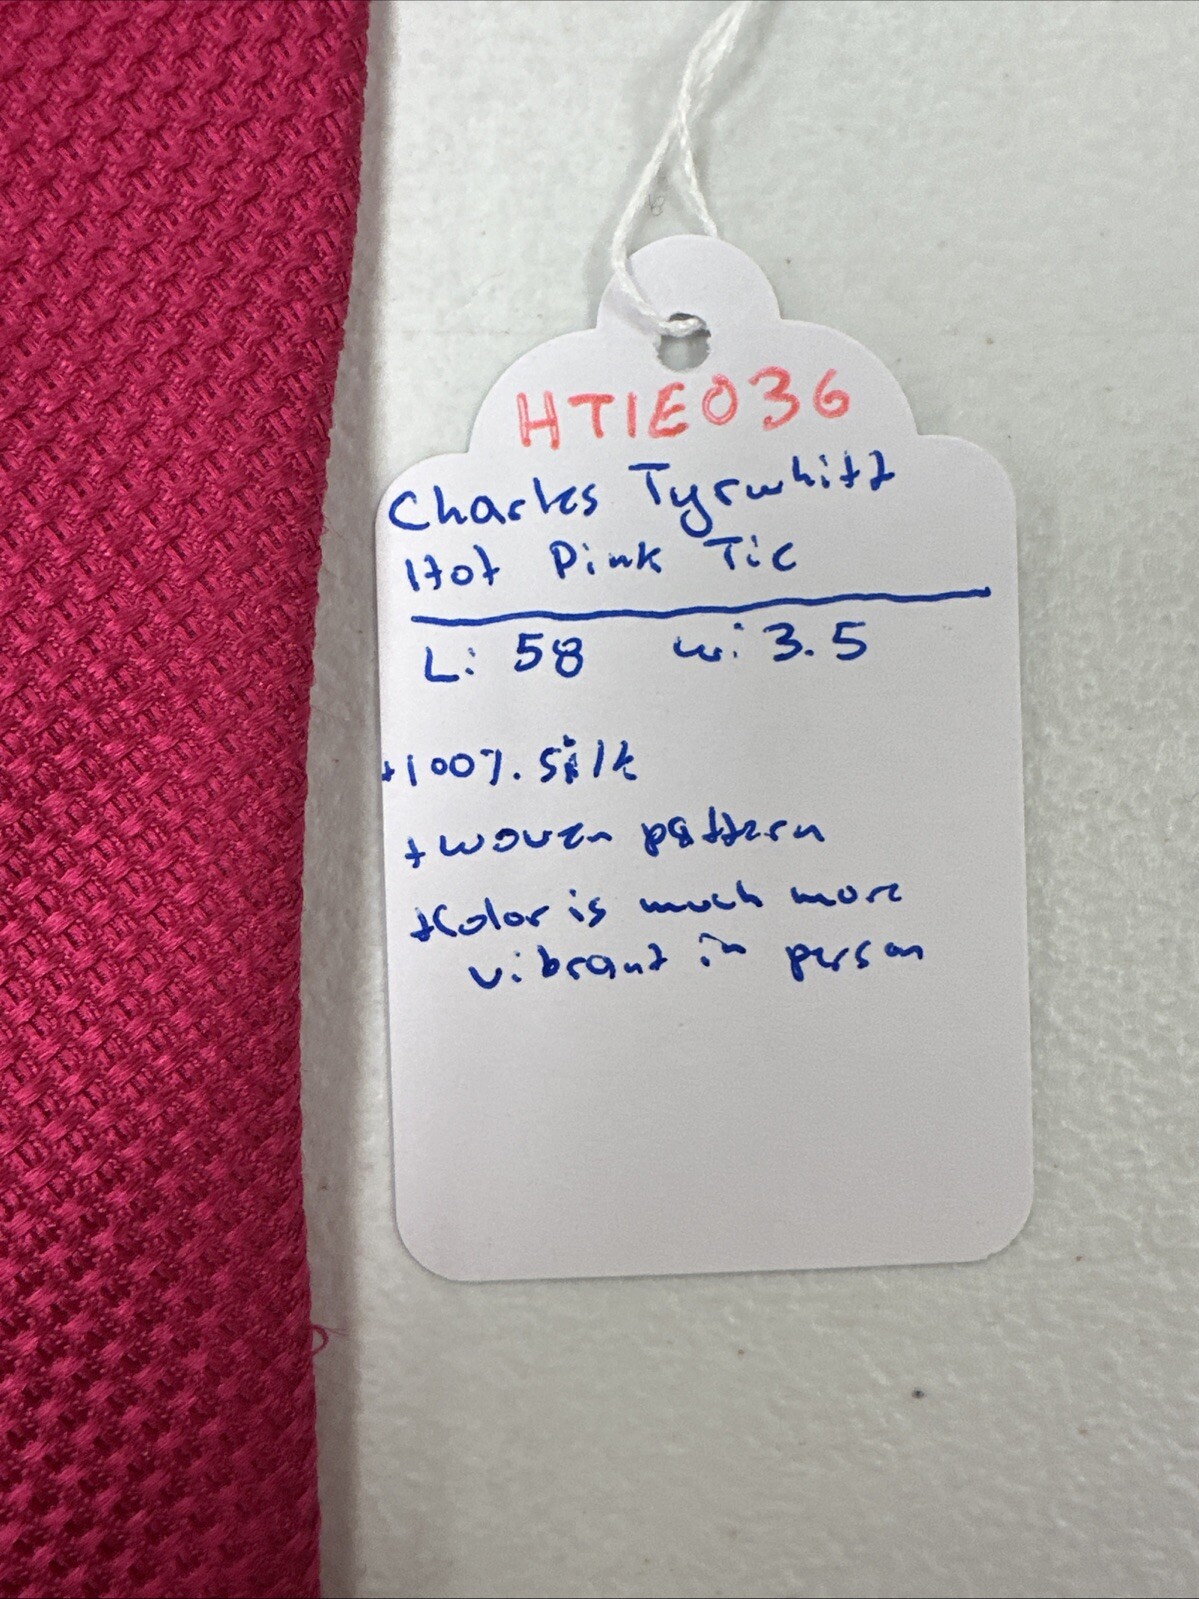 HTIE036
Charles Tyrwhitt
Hot Pink Tie
L: 58 w: 3.5
+100% Silk
+ woven pattern
+Color is much more
vibrant in person